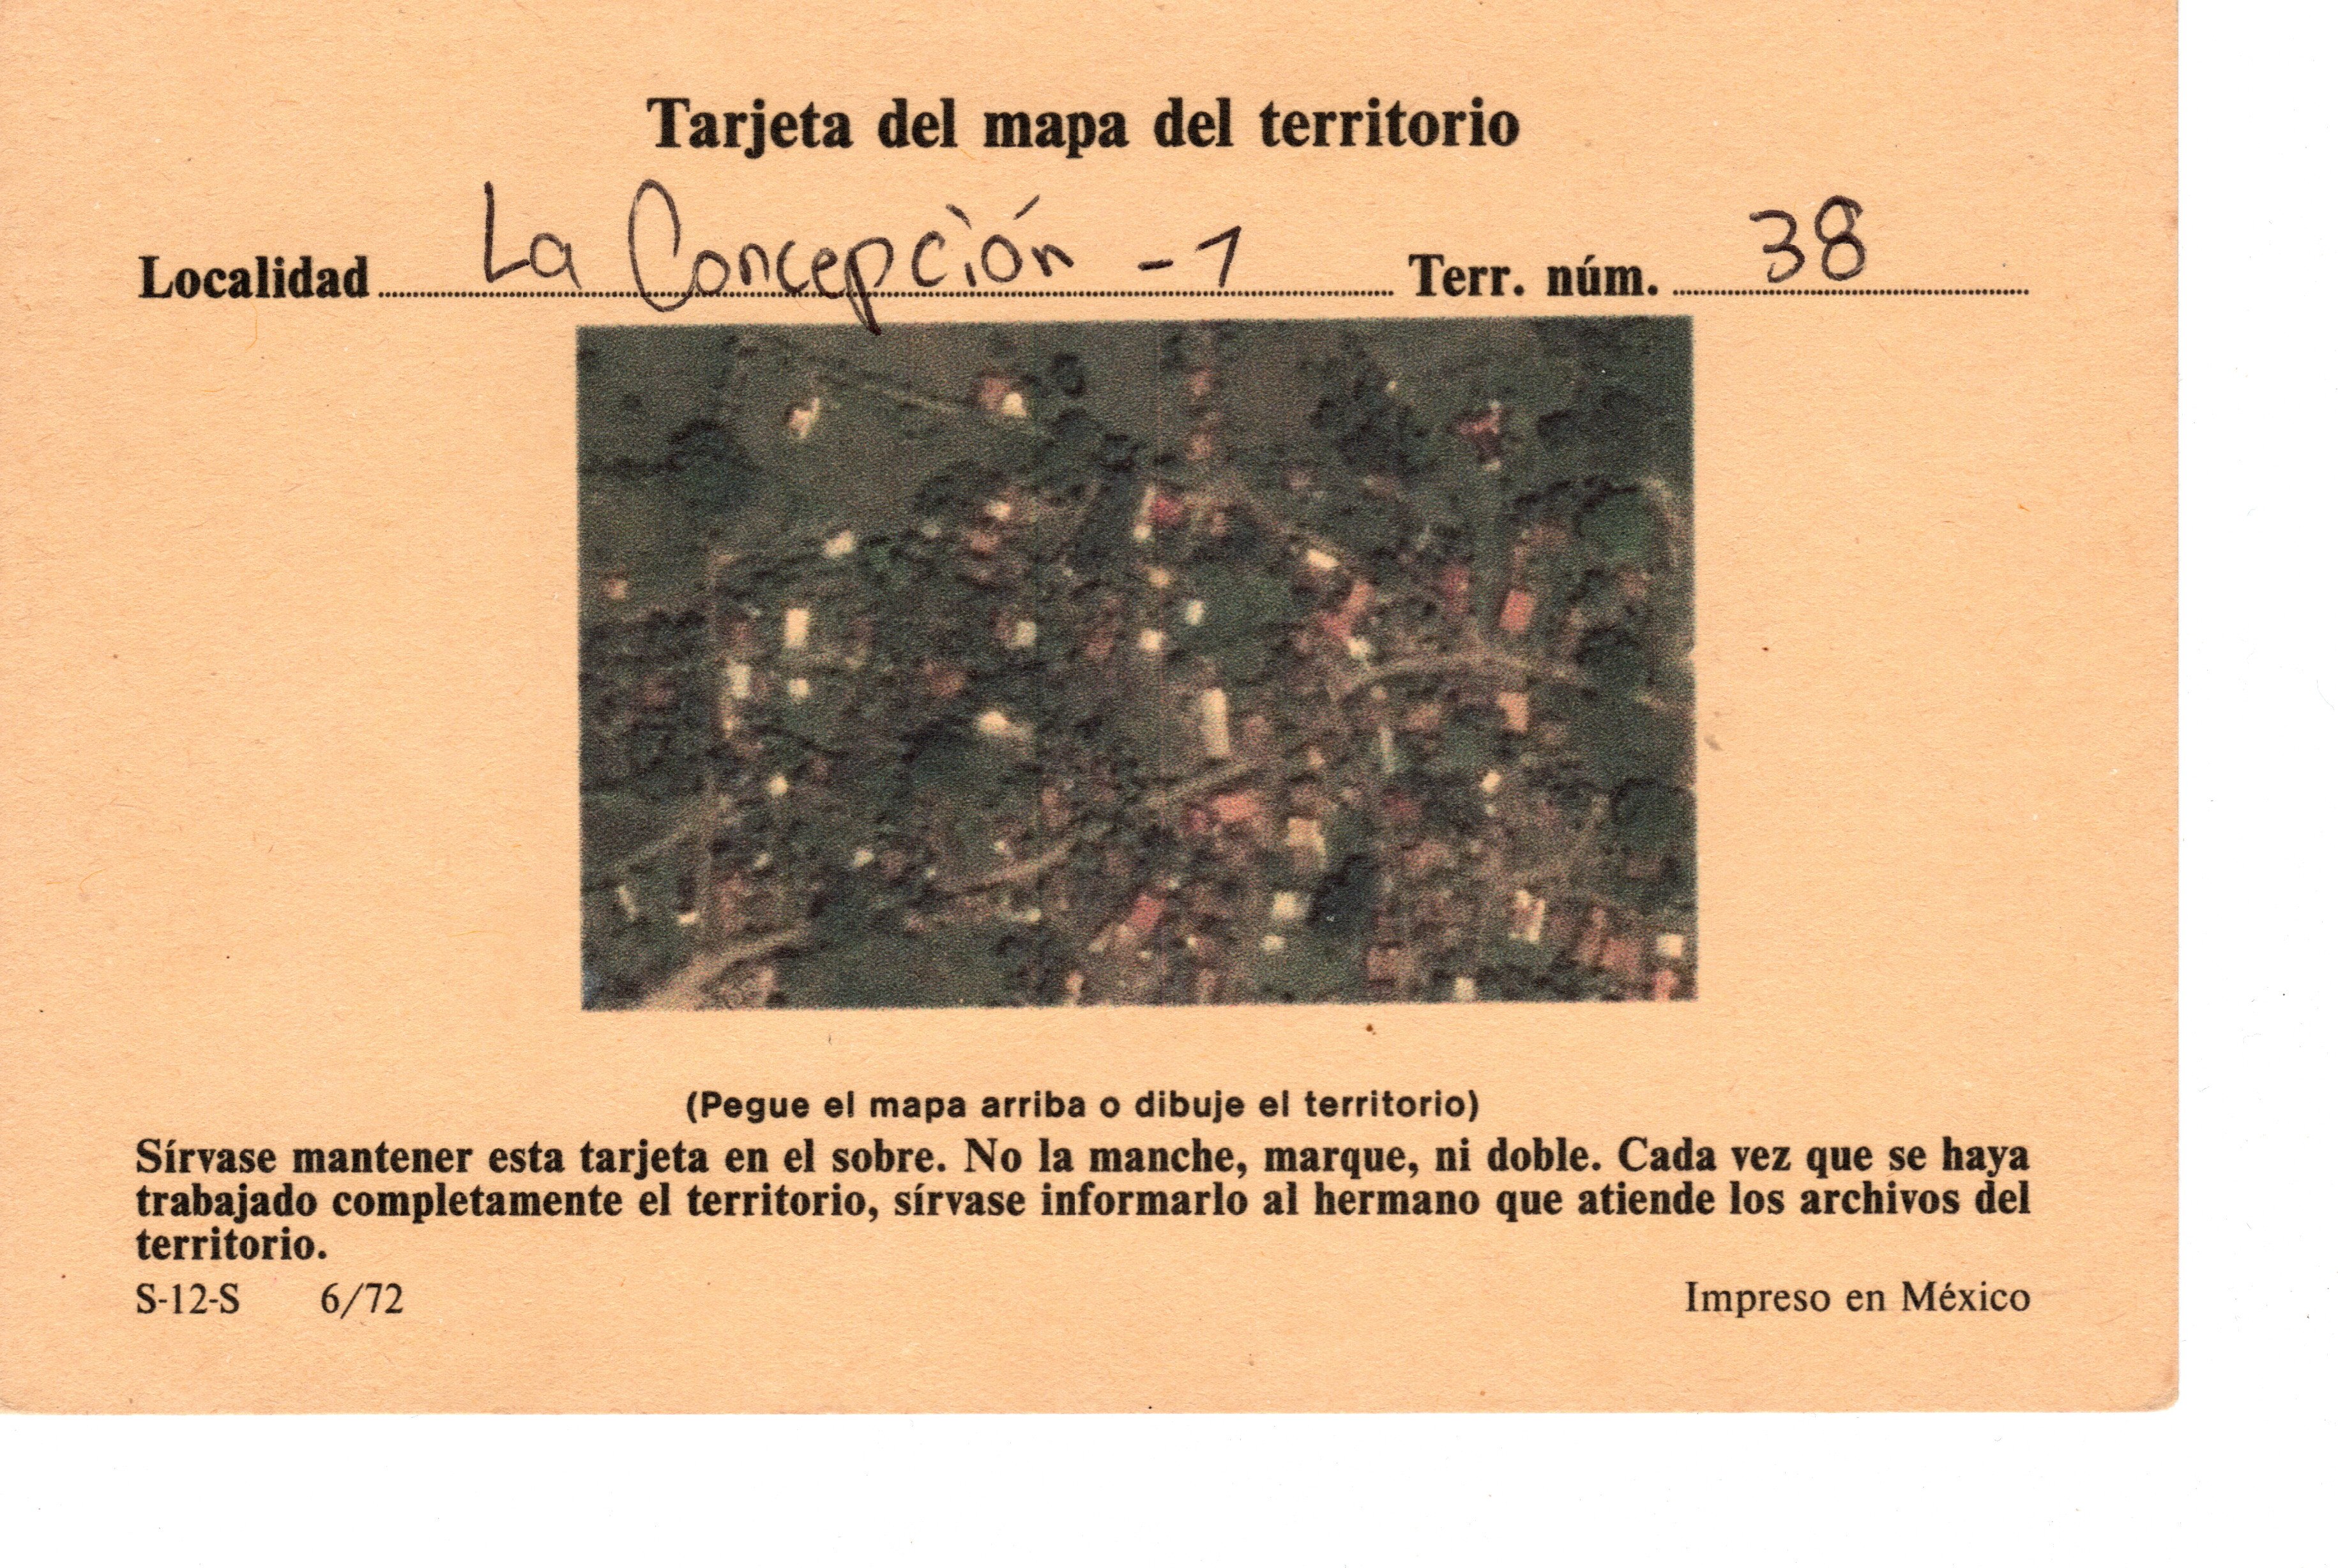 Tarjeta del mapa del territorio
Localidad La Concepción - 1 Terr. núm. 38
(Pegue el mapa arriba o dibuje el territorio)
Sírvase mantener esta tarjeta en el sobre. No la manche, marque, ni doble. Cada vez que se haya
trabajado completamente el territorio, sírvase informarlo al hermano que atiende los archivos del
territorio.
S-12-S 6/72 Impreso en México